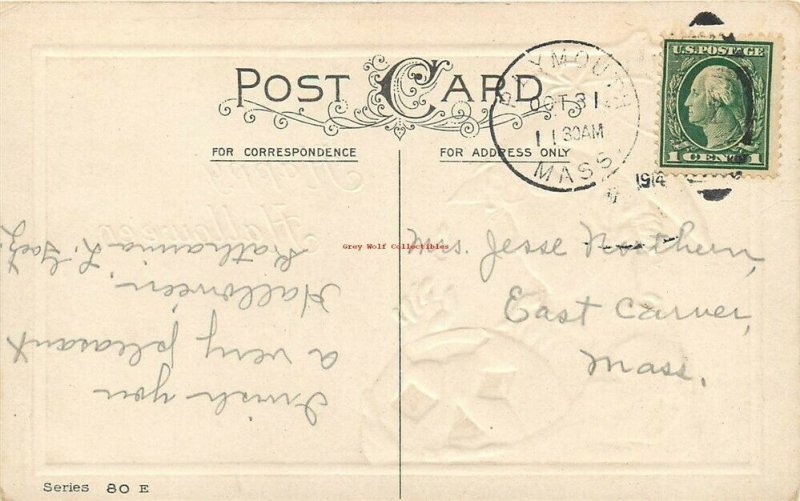 POST CARD
FOR CORRESPONDENCE
FOR ADDRESS ONLY
U.S. POSTAGE
1 CENT 1
OCT 31
11 30 AM
MASS.
1914
Grey Wolf Collectibles
I wish you
a very pleasant
Halloween.
Katharina L.
Mrs. Jesse Northern,
East Carver,
Mass.
Series 80 E